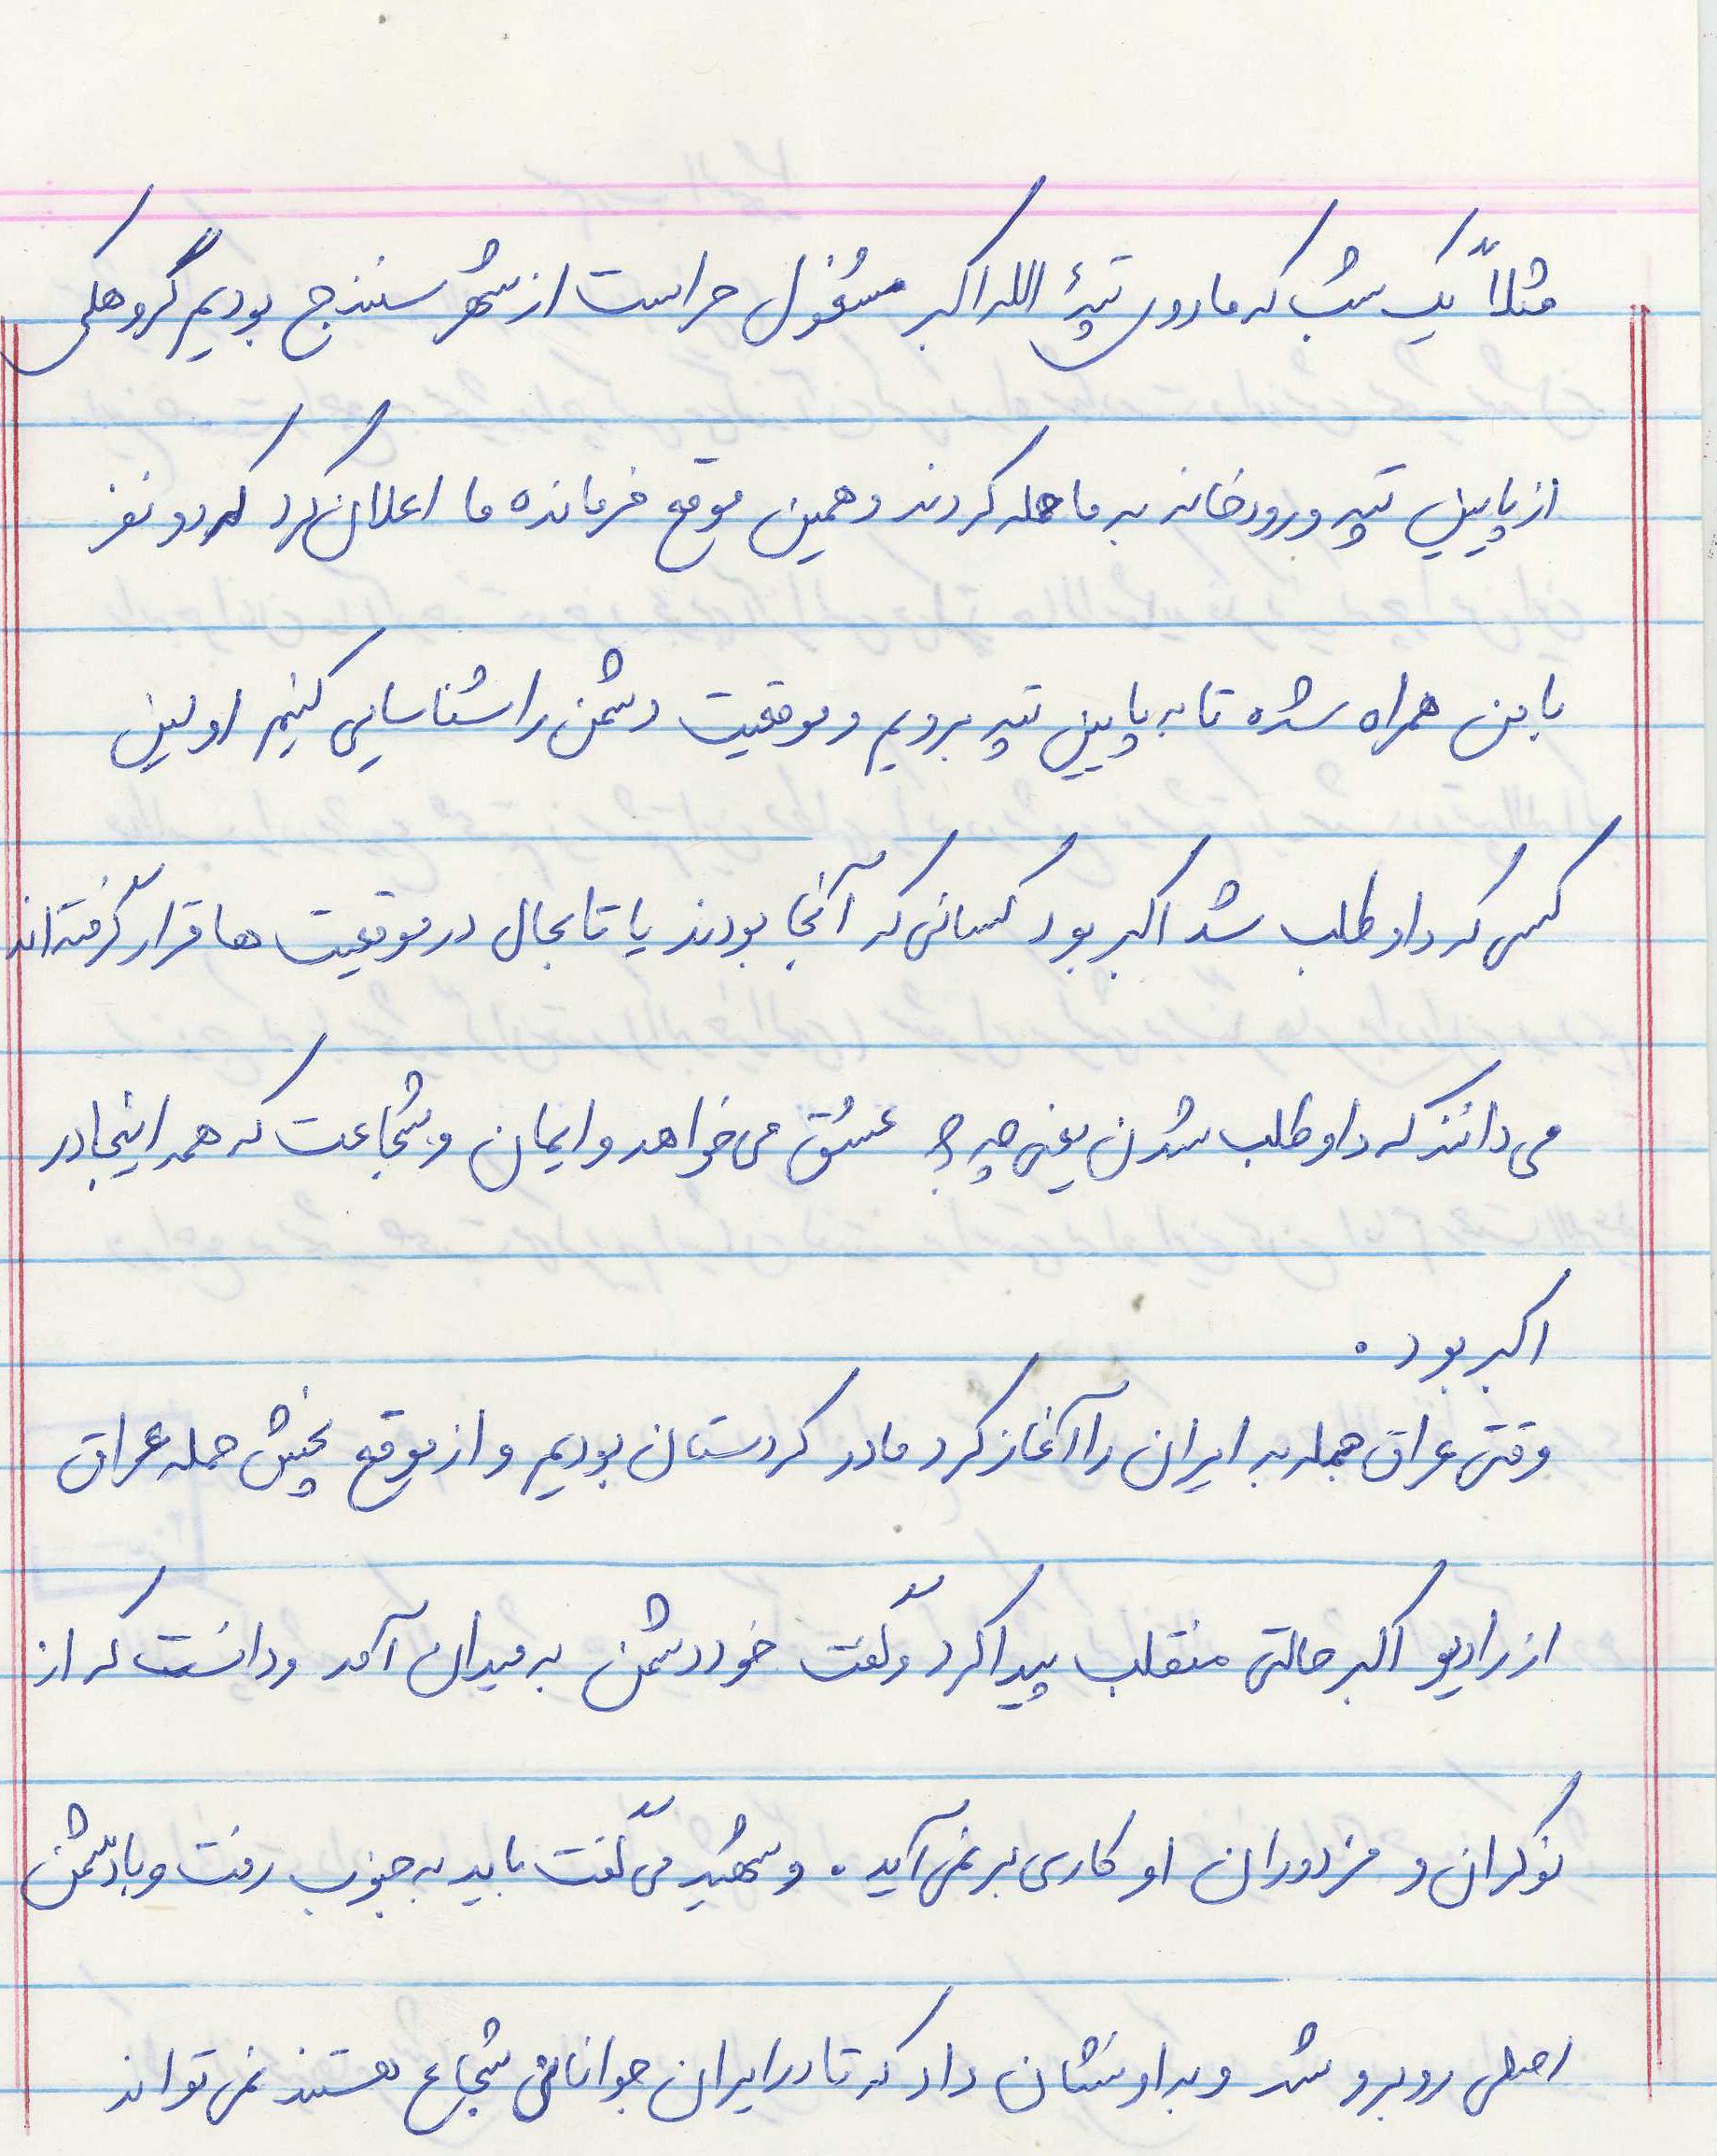 مثلاً یک شب که ما روی تپهٔ الله اکبر مشغول حراست از شهر سنندج بودیم گروهکی
از پایین تپه و رودخانه به ما حمله کردند و همین موقع فرمانده ما اعلان کرد که دو نفر
با من همراه شده تا به پایین تپه برویم و موقعیت دشمن را شناسایی کنیم اولین
کسی که داوطلب شد اکبر بود کسانی که آنجا بودند یا تابحال در موقعیت ها قرار گرفته اند
می دانند که داوطلب شدن یعنی چه چه عشق می خواهد و ایمان و شجاعت که همه اینجا در
اکبر بود.
وقتی عراق حمله به ایران را آغاز کرد ما در کردستان بودیم و از موقع پخش حمله عراق
از رادیو اکبر حالتی منقلب پیدا کرد و گفت خود دشمن به میدان آمد و دانست که از
نوکران و مزدوران او کاری بر نمی آید. و شهید می گفت باید به جنوب رفت و با دشمن
اصلی روبرو شد و به او نشان داد که تا در ایران جوانانی شجاع هستند نمی تواند